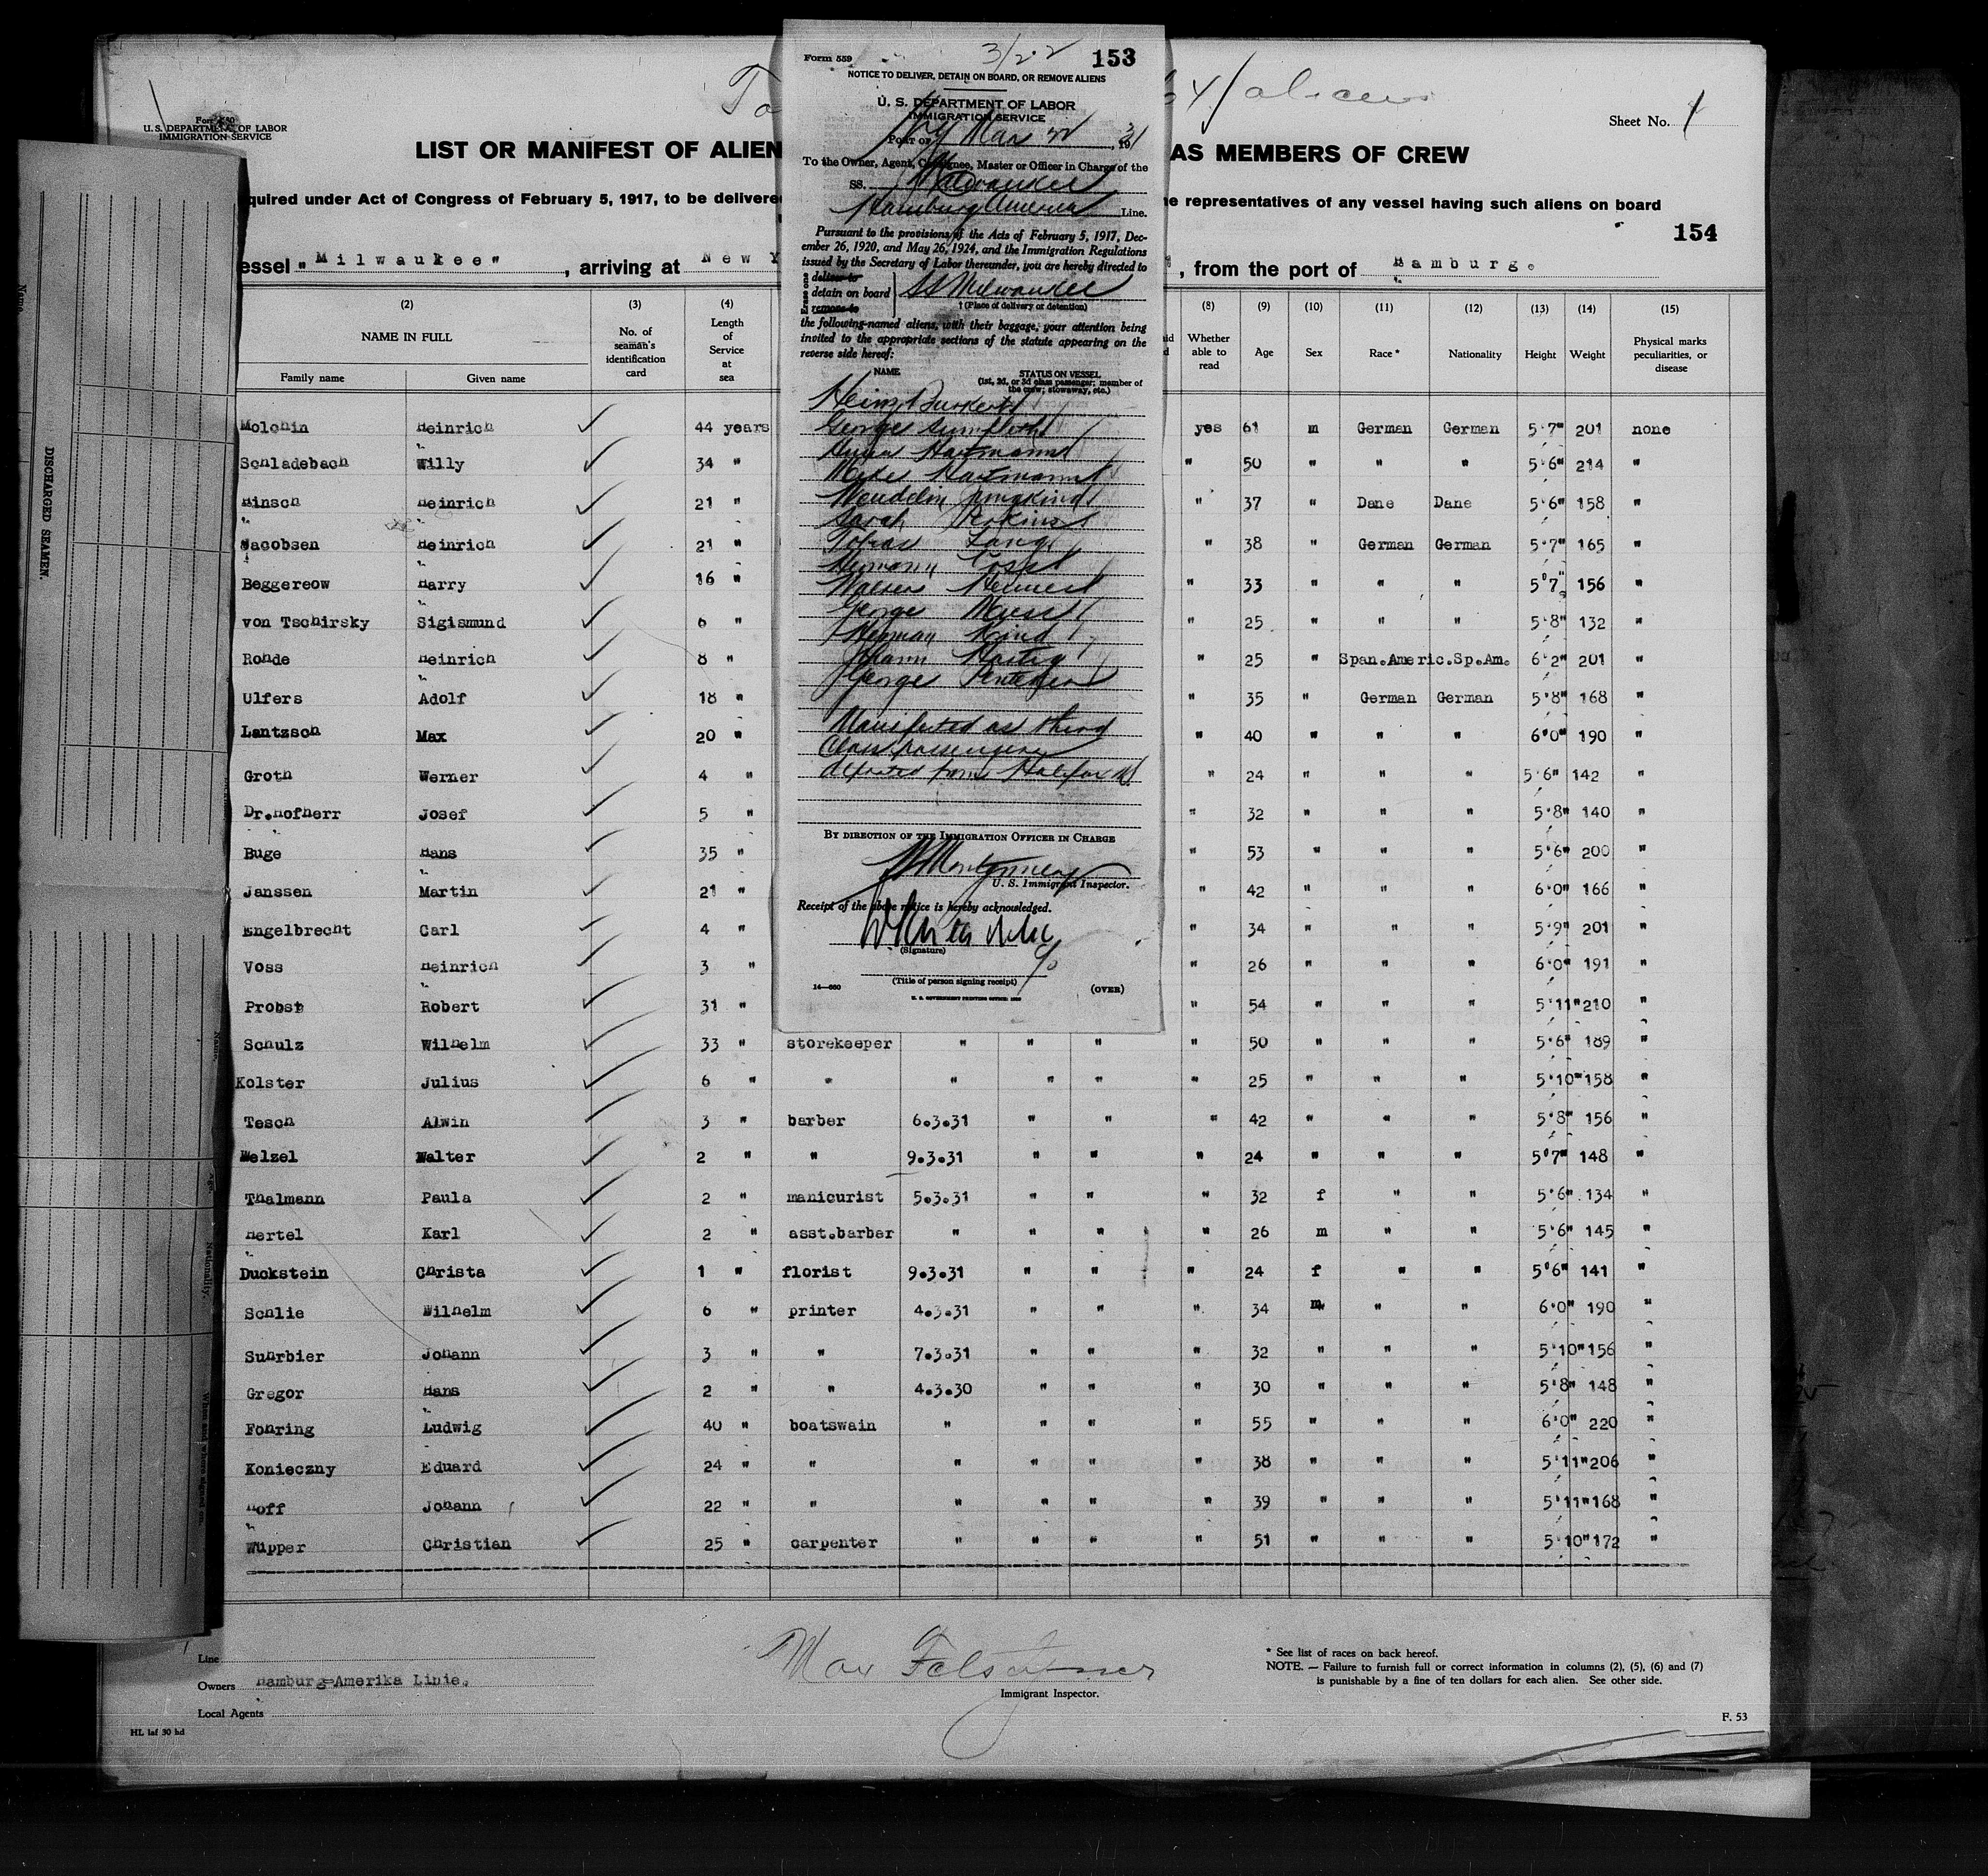 Form 559
3/22
153
NOTICE TO DELIVER, DETAIN ON BOARD, OR REMOVE ALIENS
U. S. DEPARTMENT OF LABOR
IMMIGRATION SERVICE
Port of NY Mar 22, 1931
To the Owner, Agent, Consignee, Master or Officer in Charge of the
SS. Milwaukee
Hamburg America Line.
Pursuant to the provisions of the Acts of February 5, 1917, Dec-
ember 26, 1920, and May 26, 1924, and the Immigration Regulations
issued by the Secretary of Labor thereunder, you are hereby directed to
Erase one
deliver to
detain on board
remove to
SS Milwaukee
† (Place of delivery or detention)
the following-named aliens, with their baggage, your attention being
invited to the appropriate sections of the statute appearing on the
reverse side hereof:
NAME
STATUS ON VESSEL
(1st, 2d, or 3d class passenger; member of
the crew; stowaway, etc.)
Heinz
George
Hartmann
Hartmann
Sarah Perkins
Lang
George
Herman
Johann
George
Manifested as third
class passengers
deported from Halifax
BY DIRECTION OF THE IMMIGRATION OFFICER IN CHARGE
Montgomery
U. S. Immigrant Inspector.
Receipt of the above notice is hereby acknowledged.
(Signature)
(Title of person signing receipt)
14—660
U. S. GOVERNMENT PRINTING OFFICE
(OVER)
U. S. DEPARTMENT OF LABOR
IMMIGRATION SERVICE
aliens
Sheet No. 1
LIST OR MANIFEST OF ALIEN AS MEMBERS OF CREW
quired under Act of Congress of February 5, 1917, to be delivered e representatives of any vessel having such aliens on board
154
essel "Milwaukee", arriving at New Y , from the port of Hamburg.
(2) (3) (4) (8) (9) (10) (11) (12) (13) (14) (15)
NAME IN FULL
Family name
Given name
No. of
seaman's
identification
card
Length
of
Service
at
sea
Whether
able to
read
Age
Sex
Race *
Nationality
Height
Weight
Physical marks
peculiarities, or
disease
Molchin Heinrich ✓ 44 years yes 61 m German German 5'7" 201 none
Schladebach Willy ✓ 34 " " 50 " " " 5'6" 214 "
Hinsch Heinrich ✓ 21 " " 37 " Dane Dane 5'6" 158 "
Jacobsen Heinrich ✓ 21 " " 38 " German German 5'7" 165 "
Beggereow Harry ✓ 16 " " 33 " " " 5'7" 156 "
von Tschirsky Sigismund ✓ 6 " " 25 " " " 5'8" 132 "
Rohde Heinrich ✓ 8 " " 25 " Span.Americ.Sp.Am. 6'2" 201 "
Ulfers Adolf ✓ 18 " " 35 " German German 5'8" 168 "
Lantzsch Max ✓ 20 " " 40 " " " 6'0" 190 "
Groth Werner ✓ 4 " " 24 " " " 5'6" 142 "
Dr.Hofherr Josef ✓ 5 " " 32 " " " 5'8" 140 "
Buge Hans ✓ 35 " " 53 " " " 5'6" 200 "
Janssen Martin ✓ 21 " " 42 " " " 6'0" 166 "
Engelbrecht Carl ✓ 4 " " 34 " " " 5'9" 201 "
Voss Heinrich ✓ 3 " " 26 " " " 6'0" 191 "
Probst Robert ✓ 31 " " 54 " " " 5'11" 210 "
Schulz Wilhelm ✓ 33 " storekeeper " " " " 50 " " " 5'6" 189 "
Kolster Julius ✓ 6 " " " " " " 25 " " " 5'10" 158 "
Tesch Alwin ✓ 3 " barber 6.3.31 " " " 42 " " " 5'8" 156 "
Welzel Walter ✓ 2 " " 9.3.31 " " " 24 " " " 5'7" 148 "
Thalmann Paula ✓ 2 " manicurist 5.3.31 " " " 32 f " " 5'6" 134 "
Hertel Karl ✓ 2 " asst.barber " " " " 26 m " " 5'6" 145 "
Duckstein Christa ✓ 1 " florist 9.3.31 " " " 24 f " " 5'6" 141 "
Schlie Wilhelm ✓ 6 " printer 4.3.31 " " " 34 m " " 6'0" 190 "
Suhrbier Johann ✓ 3 " " 7.3.31 " " " 32 " " " 5'10" 156 "
Gregor Hans ✓ 2 " " 4.3.30 " " " 30 " " " 5'8" 148 "
Fohring Ludwig ✓ 40 " boatswain " " " " 55 " " " 6'0" 220 "
Konieczny Eduard ✓ 24 " " " " " " 38 " " " 5'11" 206 "
Hoff Johann ✓ 22 " " " " " " 39 " " " 5'11" 168 "
Wüpper Christian ✓ 25 " carpenter " " " " 51 " " " 5'10" 172 "
Line
Owners Hamburg=Amerika Linie.
Local Agents
HL laf 30 hd
Max
Immigrant Inspector.
* See list of races on back hereof.
NOTE. — Failure to furnish full or correct information in columns (2), (5), (6) and (7)
is punishable by a fine of ten dollars for each alien. See other side.
F. 53
DISCHARGED SEAMEN.
Name.
Name.
Age.
Nationality.